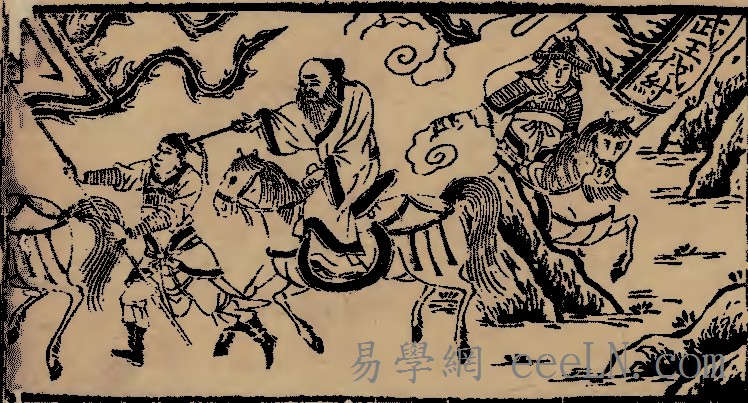 武王伐紂
易學網 eeeLN.com